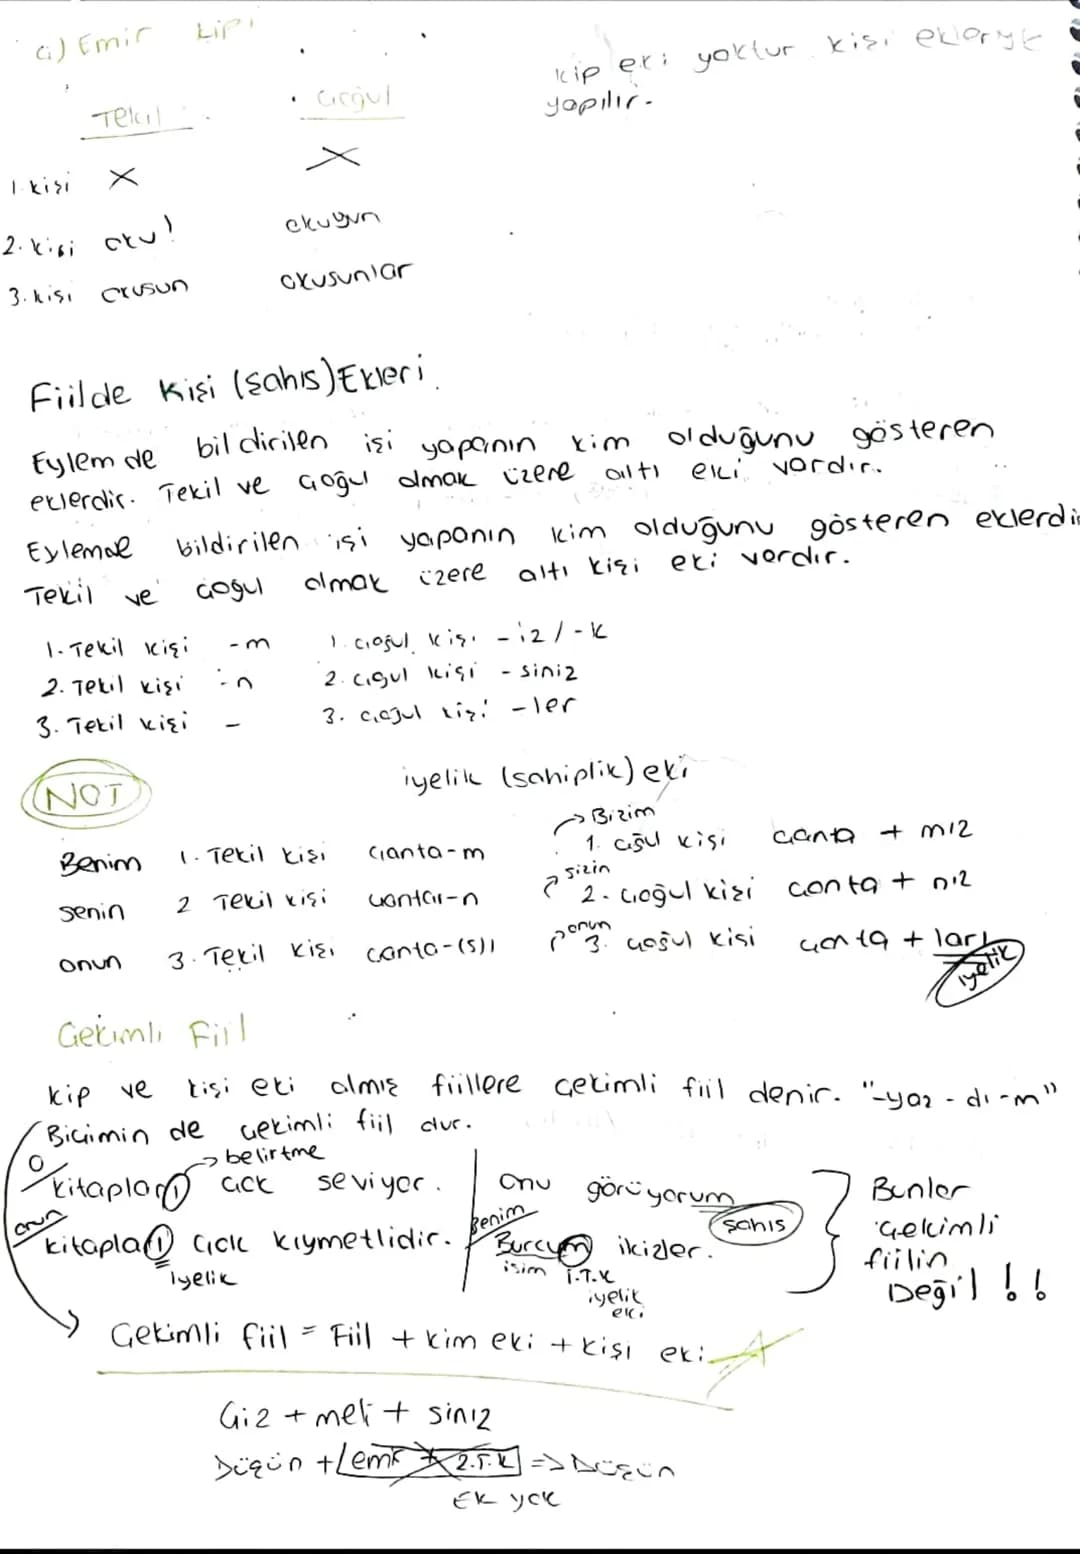 a) Emir kipi
kip eki yoktur kişi ekleriyle
yapılır.
Tekil Çoğul
1. kişi X X
2. kişi oku! okuyun
3. kişi okusun okusunlar
Fiilde Kişi (Şahıs) Ekleri.
Eylemde bildirilen işi yapanın kim olduğunu gösteren
eklerdir. Tekil ve çoğul olmak üzere altı eki vardır.
Eylemde bildirilen işi yapanın kim olduğunu gösteren eklerdir
Tekil ve çoğul olmak üzere altı kişi eki vardır.
1. Tekil kişi -m 1. çoğul kişi -iz / -k
2. Tekil kişi -n 2. çoğul kişi -siniz
3. Tekil kişi - 3. çoğul kişi -ler
NOT
iyelik (sahiplik) eki
Benim 1. Tekil kişi çanta-m → Bizim 1. çoğul kişi çanta + mız
senin 2 Tekil kişi çanta-n sizin 2. çoğul kişi çanta + nız
onun 3. Tekil kişi çanta-(s)ı onun 3. çoğul kişi çanta + ları
iyelik
Çekimli Fiil
kip ve kişi eki almış fiillere çekimli fiil denir. "-yaz - dı -m"
Biçimin de çekimli fiil dur.
→ belirtme
O kitapları çok seviyor. Onu görüyorum
şahıs
onun kitapları çok kıymetlidir. Benim Burcum ikizler.
iyelik isim 1.T.K
iyelik
eki
Bunlar
Çekimli
fiilin
Değil !!
Çekimli fiil = Fiil + kim eki + kişi eki
Çiz + meli + siniz
Düşün + emir + 2.T.K => Düşün
Ek yok